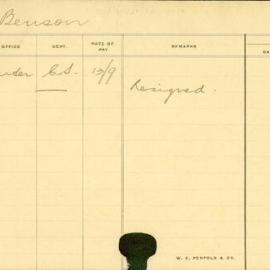 Benson
OFFICE DEPT. RATE OF PAY REMARKS
C.S. 13/9 Resigned.
W. C. PENFOLD & CO.